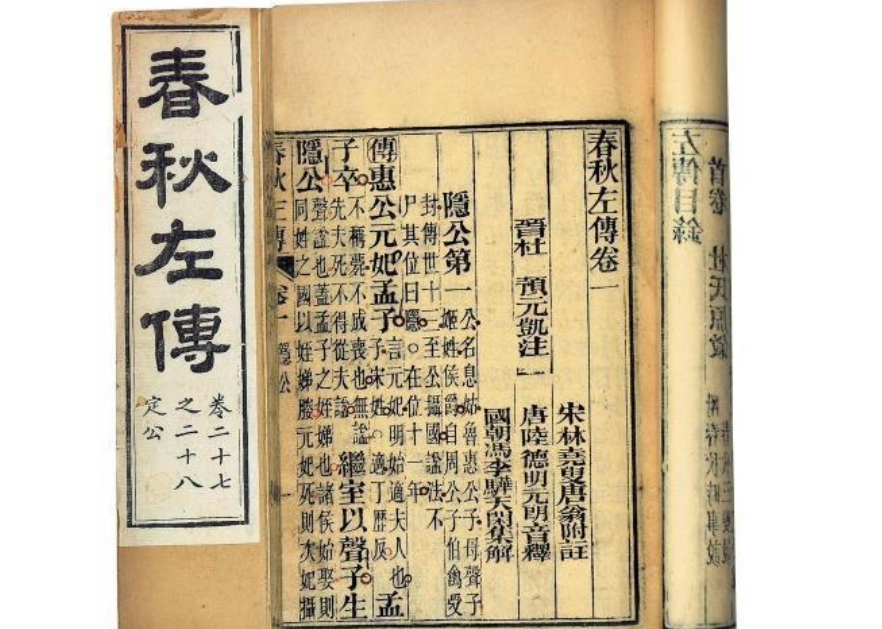 春秋左傳
卷二十七
之二十八
定公
左傳目錄
首卷 杜氏原敘
春秋左傳卷一
晉杜 預元凱注
宋林堯叟唐翁附註
唐陸德明元朗音釋
國朝馮李驊天閑集解
隱公第一 公名息姑魯惠公子母聲子
姬姓侯爵自周公子伯禽受
封傳世十三至公攝國諡法不
尸其位曰隱○在位十一年
傳惠公元妃孟子 言元妃明始適夫人也
子宋姓○適丁歷反 孟
子卒 不稱薨不成喪也無諡
先夫死不得從夫諡 繼室以聲子生
隱公 聲諡也蓋孟子之姪娣也諸侯始娶則
同姓之國以姪娣媵元妃死則次妃攝
春秋左傳 卷一 隱公 一